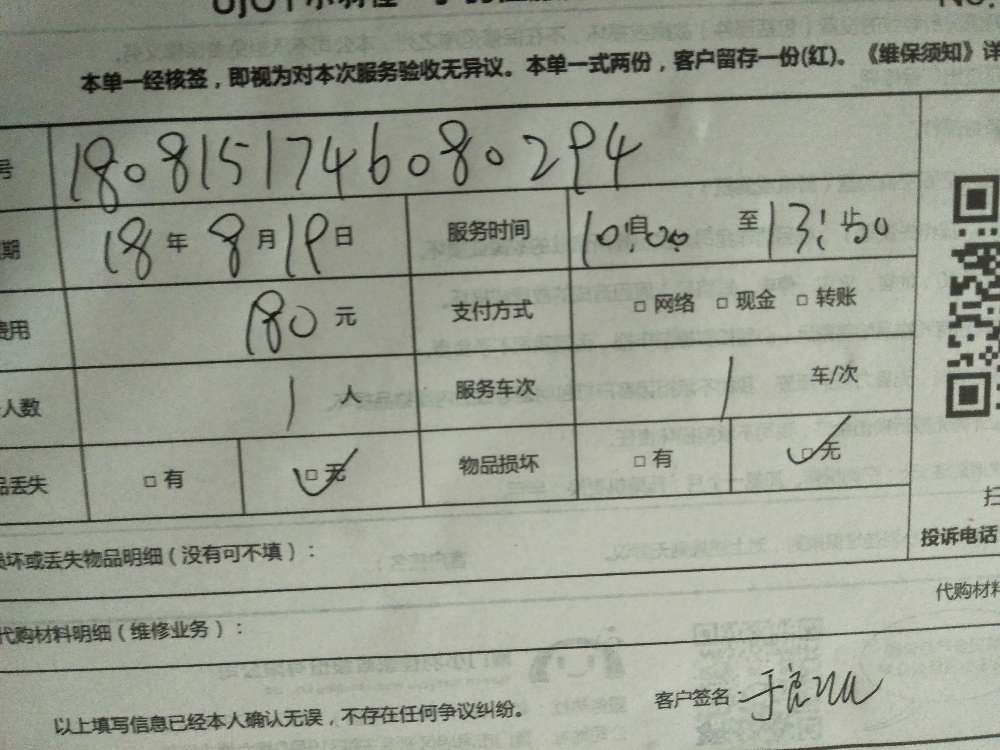 本单一经核签，即视为对本次服务验收无异议。本单一式两份，客户留存一份(红)。《维保须知》详
号 1808151746080294
期 18年 8月19日 服务时间 10:00 至 13:50
费用 180元 支付方式 □ 网络 □ 现金 □ 转账
人数 1 人 服务车次 1 车/次
品丢失 □ 有 □ 无 物品损坏 □ 有 □ 无
损坏或丢失物品明细（没有可不填）：
投诉电话
代购材料
代购材料明细（维修业务）：
以上填写信息已经本人确认无误，不存在任何争议纠纷。 客户签名：